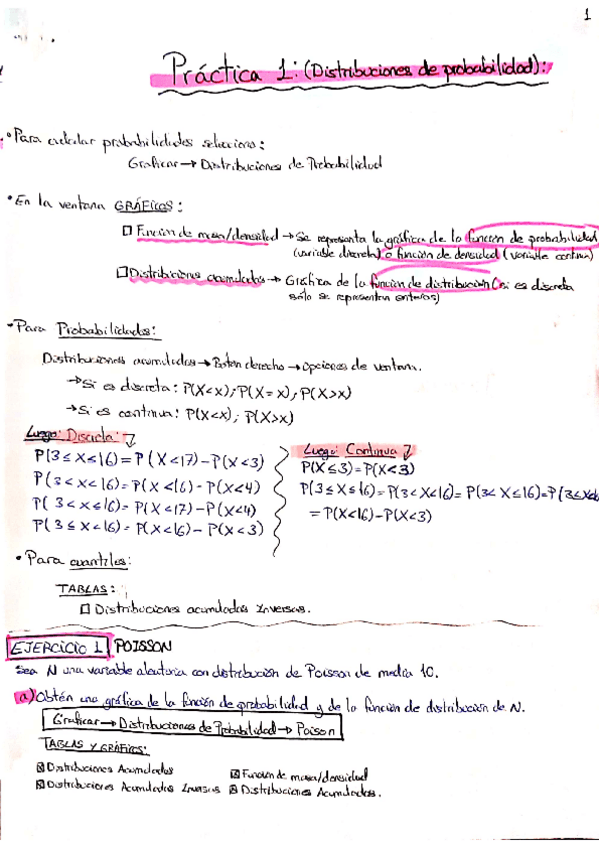 1
Práctica 1: (Distribuciones de probabilidad):
• Para calcular probabilidades selecciono:
Graficar → Distribuciones de Probabilidad
• En la ventana GRÁFICOS:
□ Función de masa/densidad → Se representa la gráfica de la función de probabilidad
(variable discreta) o función de densidad (variable continua)
□ Distribuciones acumuladas → Gráfica de la función de distribución (si es discreta
sólo se representan enteros)
• Para Probabilidades:
Distribuciones acumuladas → Boton derecho → Opciones de ventana.
→ Si es discreta: P(X<x); P(X=x); P(X>x)
→ Si es continua: P(X<x); P(X>x)
Luego: Discreta:
P(3≤X≤16) = P(X<17) - P(X<3)
P(3<X<16) = P(X<16) - P(X<4)
P(3<X≤16) = P(X<17) - P(X<4)
P(3≤X<16) = P(X<16) - P(X<3)
Luego: Continua
P(X≤3) = P(X<3)
P(3≤X≤16) = P(3<X<16) = P(3<X≤16) = P(3≤X<16
= P(X<16) - P(X<3)
• Para cuantiles:
TABLAS:
□ Distribuciones acumuladas Inversas.
EJERCICIO 1 POISSON
Sea N una variable aleatoria con distribución de Poisson de media 10.
a) Obtén una gráfica de la función de probabilidad y de la función de distribución de N.
Graficar → Distribuciones de Probabilidad → Poison
TABLAS Y GRÁFICOS:
☒ Distribuciones Acumuladas ☒ Función de masa/densidad
☒ Distribuciones Acumuladas Inversas ☒ Distribuciones Acumuladas.